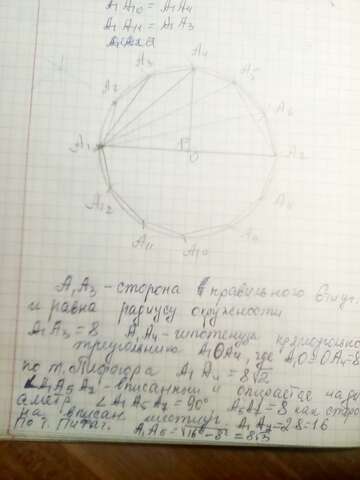 A₁A₁₀ = A₁A₄
A₁A₁₁ = A₁A₃
A₄
A₃
A₅
A₂
A₆
A₁
O
A₇
A₁₂
A₈
A₁₁
A₁₀
A₉
A₁A₃ - сторона правильного 6тиуг.
и равна радиусу окружности
A₁A₃ = 8 A₁A₄ - гипотенуза
A₁OA₄, где A₁O = OA₄ = 8
по т. Пифагора A₁A₄ = 8√2
∠A₁A₅A₇ - вписанный и опирается на ди
аметр ∠A₁A₅A₇ = 90° A₅A₇ = 8 как сторо
на вписан. шестиуг. A₁A₇ = 2·8 = 16
По т. Пифаг. A₁A₅ = √16² - 8² = 8√3